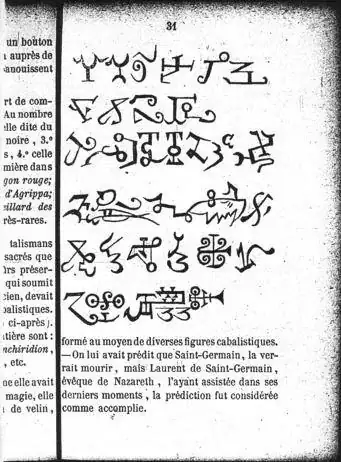 31
un bouton
auprès de
anouissent
rt de com-
Au nombre
elle dite du
noire , 3.º
s , 4.º celle
mière dans
gon rouge;
d'Agrippa;
eillard des
rès-rares.
talismans
sacrés que
rs préser-
qui soumit
cien, devait
balistiques.
ci-après).
tière sont :
nchiridion,
, etc.
ne elle avait
magie, elle
de velin,
formé au moyen de diverses figures cabalistiques.
—On lui avait prédit que Saint-Germain, la ver-
rait mourir, mais Laurent de Saint-Germain,
évêque de Nazareth , l'ayant assistée dans ses
derniers moments , la prédiction fut considérée
comme accomplie.